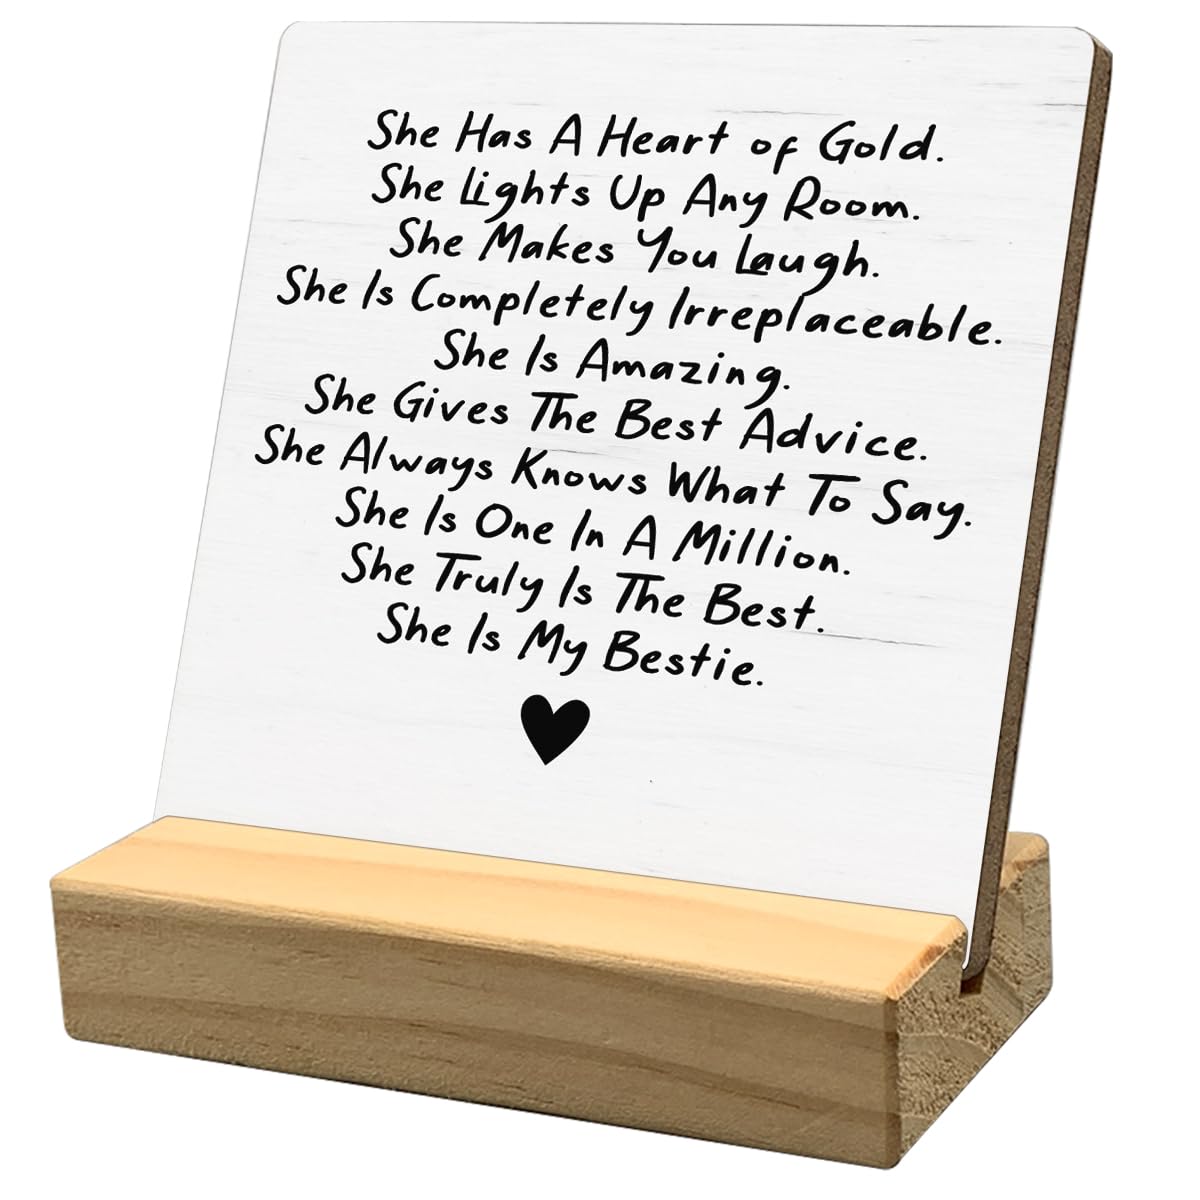 She Has A Heart of Gold.
She Lights Up Any Room.
She Makes You Laugh.
She Is Completely Irreplaceable.
She Is Amazing.
She Gives The Best Advice.
She Always Knows What To Say.
She Is One In A Million.
She Truly Is The Best.
She Is My Bestie.